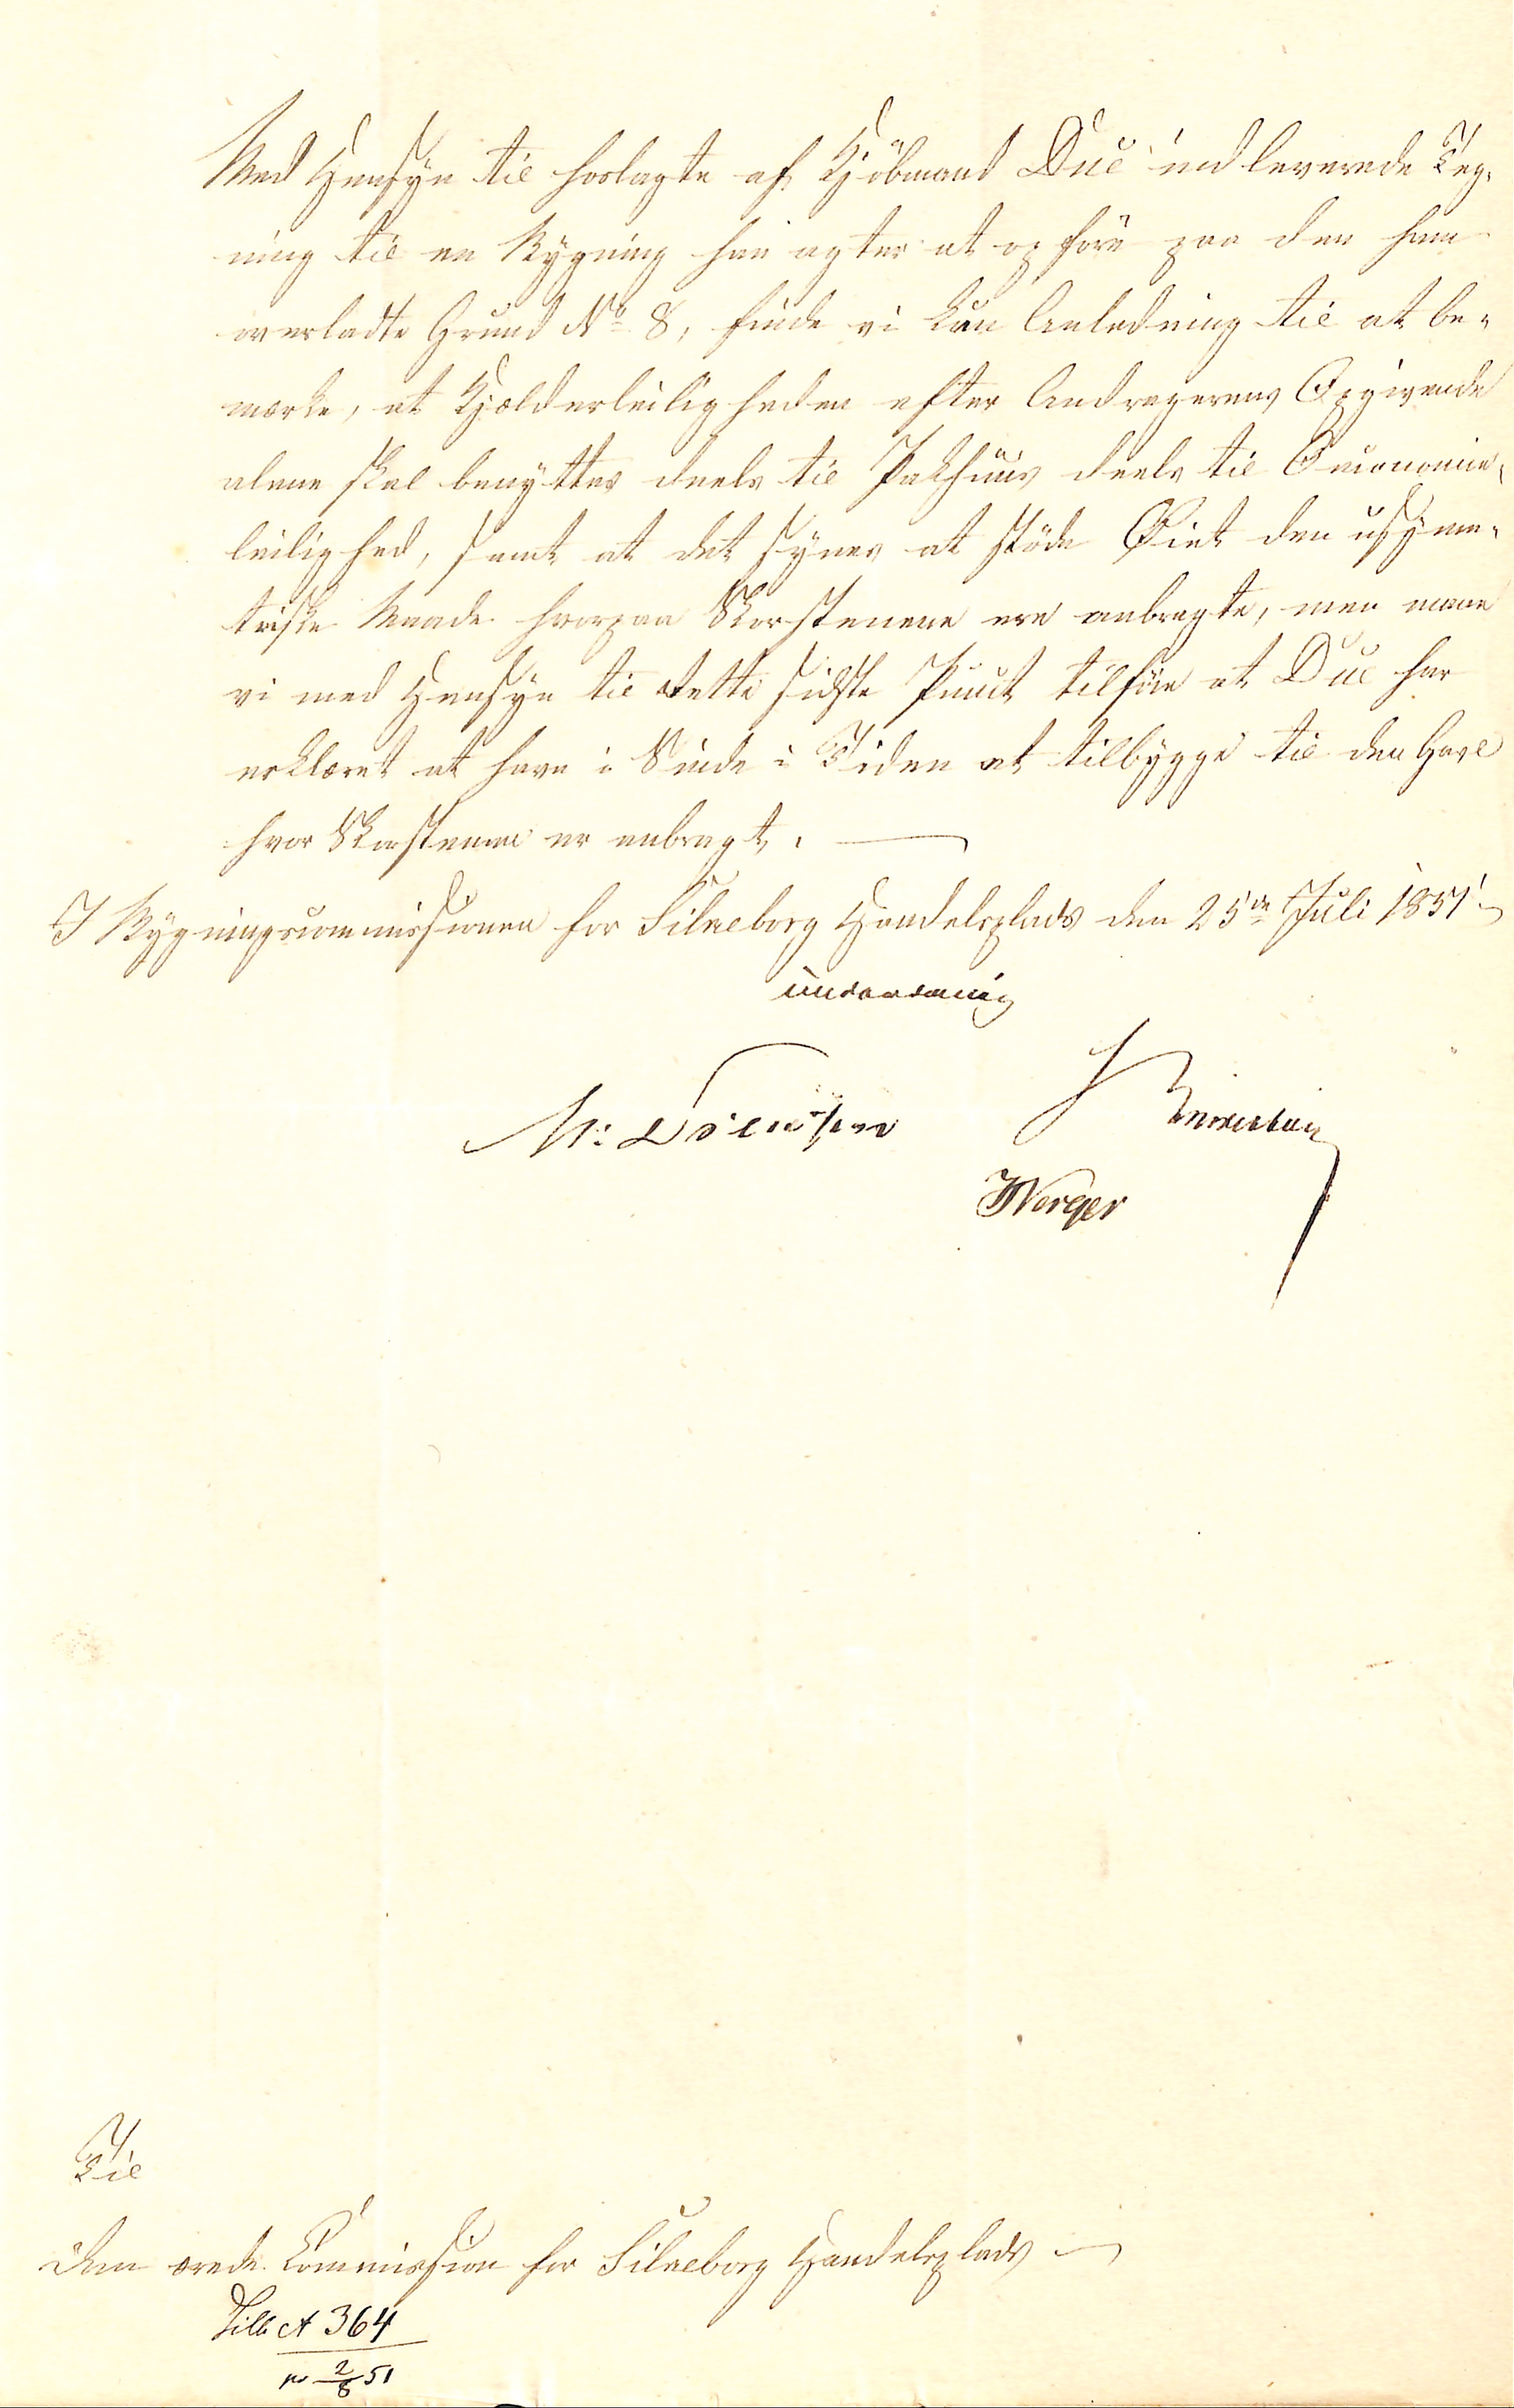 Med Hensyn til hoslagte af Kjöbmand Due indleverede Teg-
ning til en Bygning han agter at opföre paa den ham
overladte Grund No 8, finde vi kun Anledning til at be-
mærke, at Kjælderleiligheden efter Andragerens Opgivende
alene skal benyttes deels til Pakhuus deels til Oeconomie-
leilighed, samt at det synes at støde Øiet den usyme-
triske Maade hvorpaa Skorstenene ere anbragte, men maae
vi med Hensyn til dette sidste Punct tilföie at Due har
erklæret at have i Sinde i Tiden at tilbygge til den Gavl
hvor Skorstenene er anbragt.
I Bygningscommissionen for Silkeborg Handelsplads den 25de Juli 1851
underdanig
Til
Den ærede Commission for Silkeborg Handelsplads
Silk A 364
pr 2/8 51